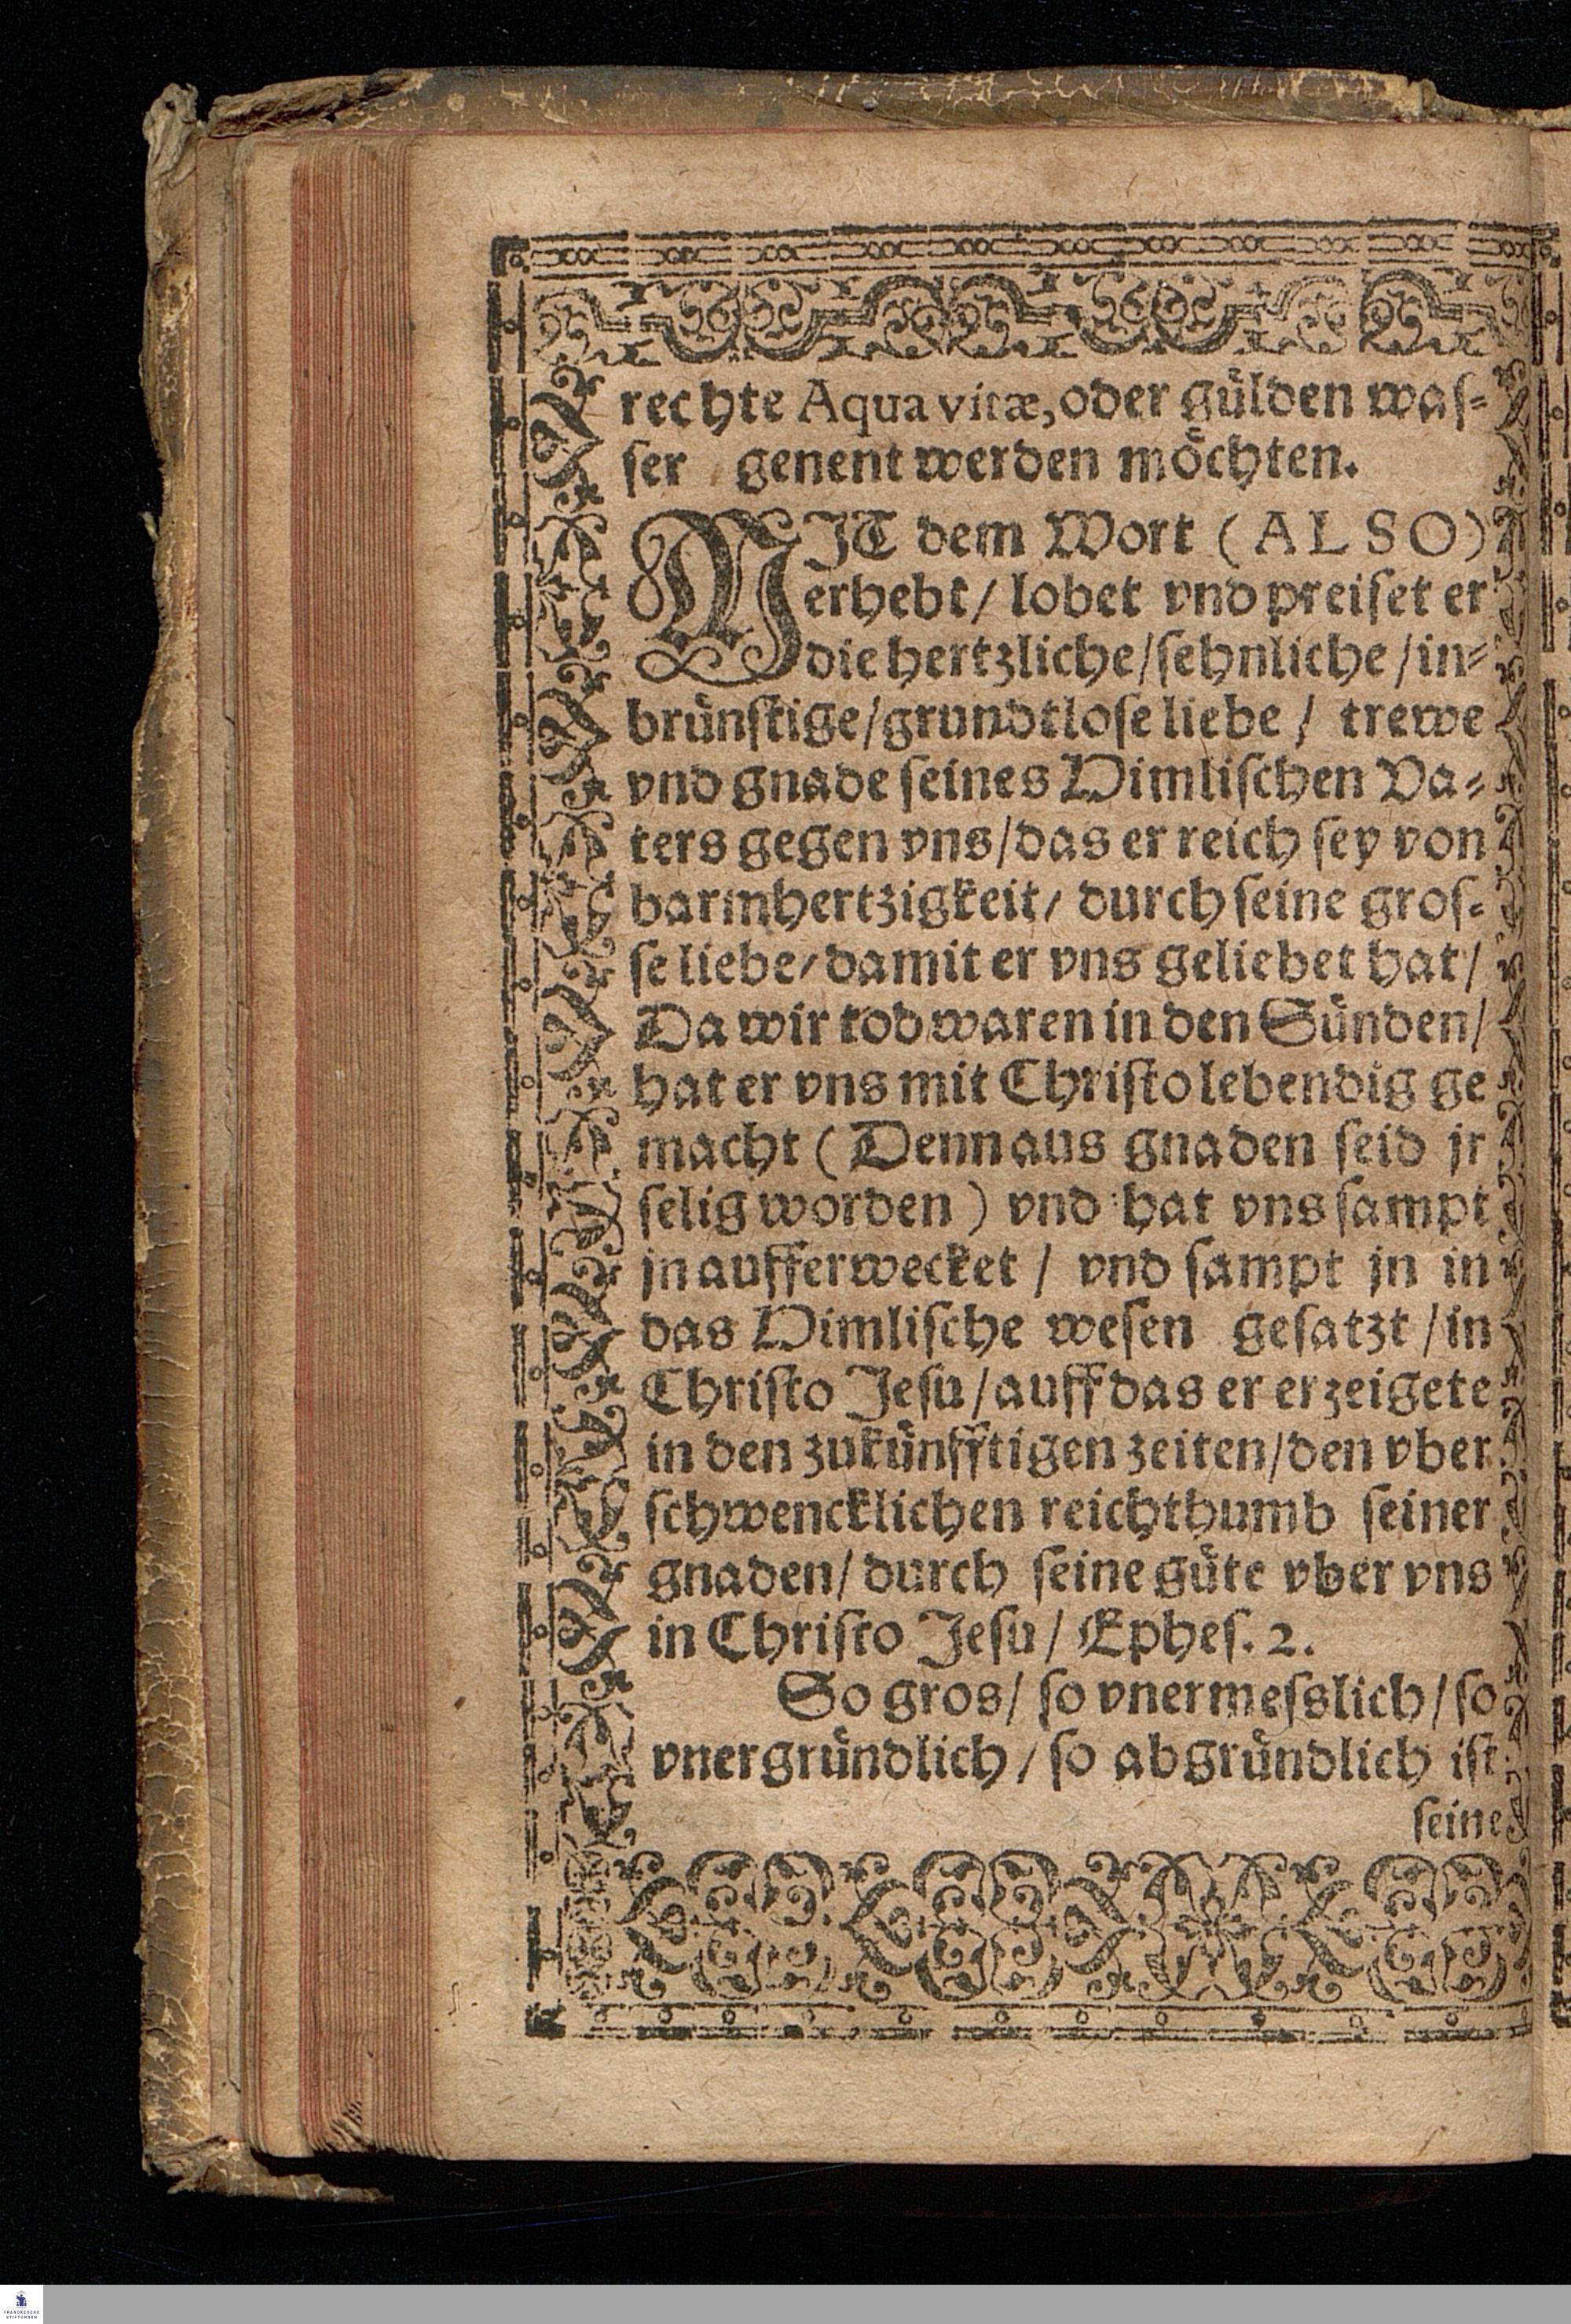 rechte Aqua vitæ, oder gůlden waſ⸗
ſer genent werden mǒchten.
MJT dem Wort (ALSO)
erhebt/ lobet vnd preiſet er
die hertzliche/ſehnliche/in⸗
brůnſtige/grundtloſe liebe/ trewe
vnd gnade ſeines Himliſchen Va⸗
ters gegen vns/das er reich ſey von
barmhertzigkeit/ durch ſeine groſ⸗
ſe liebe/damit er vns geliebet hat/
Da wir tod waren in den Sůnden/
hat er vns mit Chriſto lebendig ge
macht (Denn aus gnaden ſeid jr
ſelig worden) vnd hat vns ſampt
jn aufferwecket/ vnd ſampt jn in
das Himliſche weſen geſatzt/in
Chriſto Jeſu/auff das er erzeigete
in den zukůnfftigen zeiten/den vber
ſchwencklichen reichthumb ſeiner
gnaden/ durch ſeine gůte vber vns
in Chriſto Jeſu/ Epheſ. 2.
So gros/ ſo vnermeſslich/ſo
vnergrůndlich/ ſo abgrůndlich iſt
ſeine
FRANCKESCHE
STIFTUNGEN